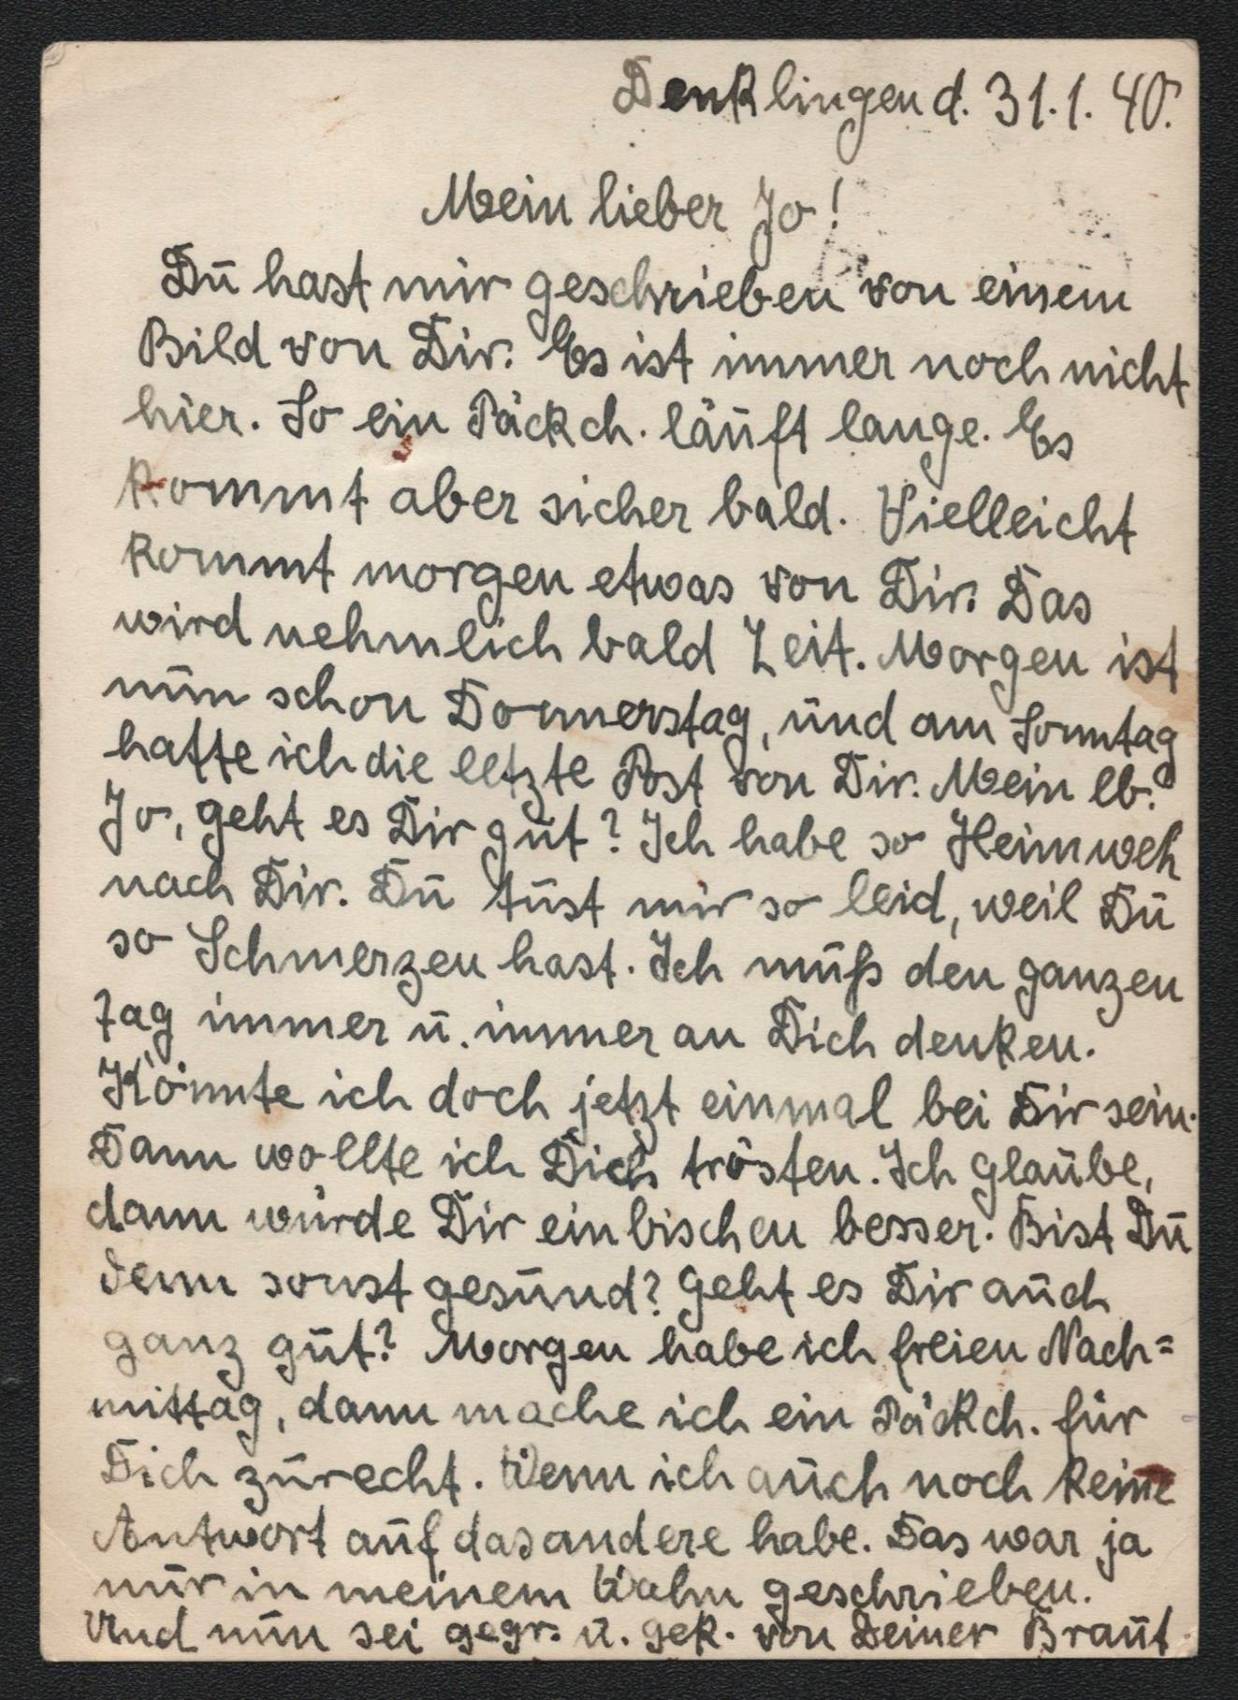 Denklingen d. 31.1.40.
Mein lieber Jo!
Dū hast mir geschrieben von einem
Bild von Dir. Es ist immer noch nicht
hier. So ein Päckch. läūft lange. Es
kommt aber sicher bald. Vielleicht
kommt morgen etwas von Dir. Das
wird nehmlich bald Zeit. Morgen ist
nūn schon Donnerstag, ūnd am Sonntag
hatte ich die letzte Post von Dir. Mein lb.
Jo, geht es Dir gūt? Ich habe so Heimweh
nach Dir. Dū tūst mir so leid, weil Dū
so Schmerzen hast. Ich mūß den ganzen
Tag immer ū. immer an Dich denken.
Könnte ich doch jetzt einmal bei Dir sein.
Dann wollte ich Dich trösten. Ich glaūbe,
dann würde Dir ein bischen besser. Bist Dū
denn sonst gesūnd? Geht es Dir aūch
ganz gūt? Morgen habe ich freien Nach=
mittag, dann mache ich ein Päckch. für
Dich zūrecht. Wenn ich aūch noch keine
Antwort aūf das andere habe. Das war ja
nūr in meinem Wahn geschrieben.
Und nūn sei gegr. ū. gek. von Deiner Braūt